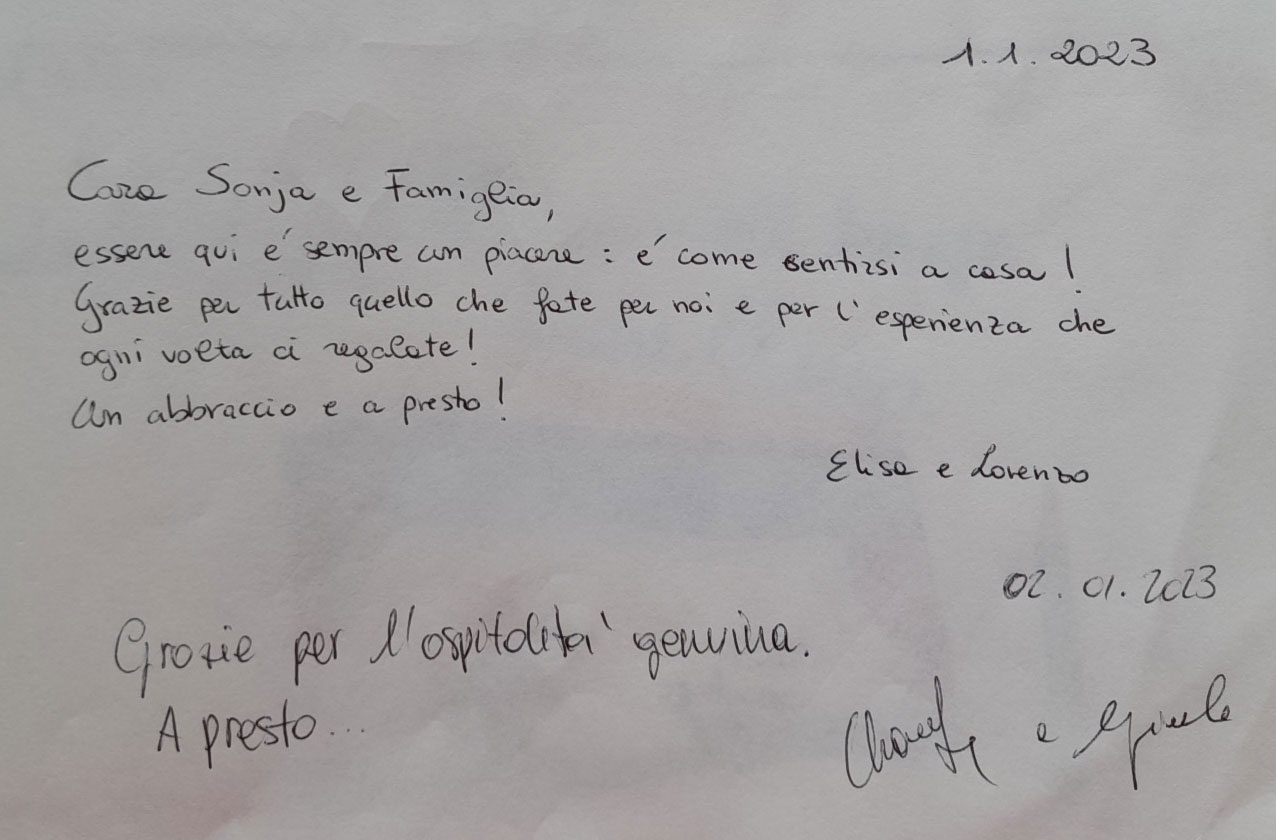 1.1.2023
Cara Sonja e Famiglia,
essere qui e' sempre un piacere : e' come sentirsi a casa !
Grazie per tutto quello che fate per noi e per l'esperienza che
ogni volta ci regalate !
Un abbraccio e a presto !
Elisa e Lorenzo
02.01.2023
Grazie per l'ospitalita' genuina.
A presto...
e